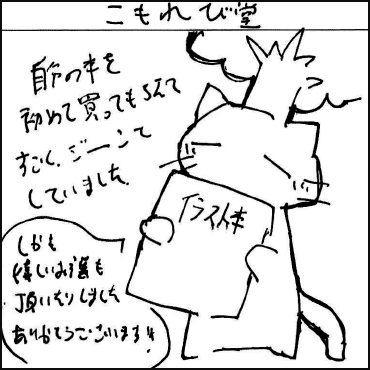 こもれび堂
自分の本を
初めて買ってもらえて
すごく、ジーンて
していました。
イラスト本
しかも
嬉しいお言葉も
頂いたりしました
ありがとうございます!!